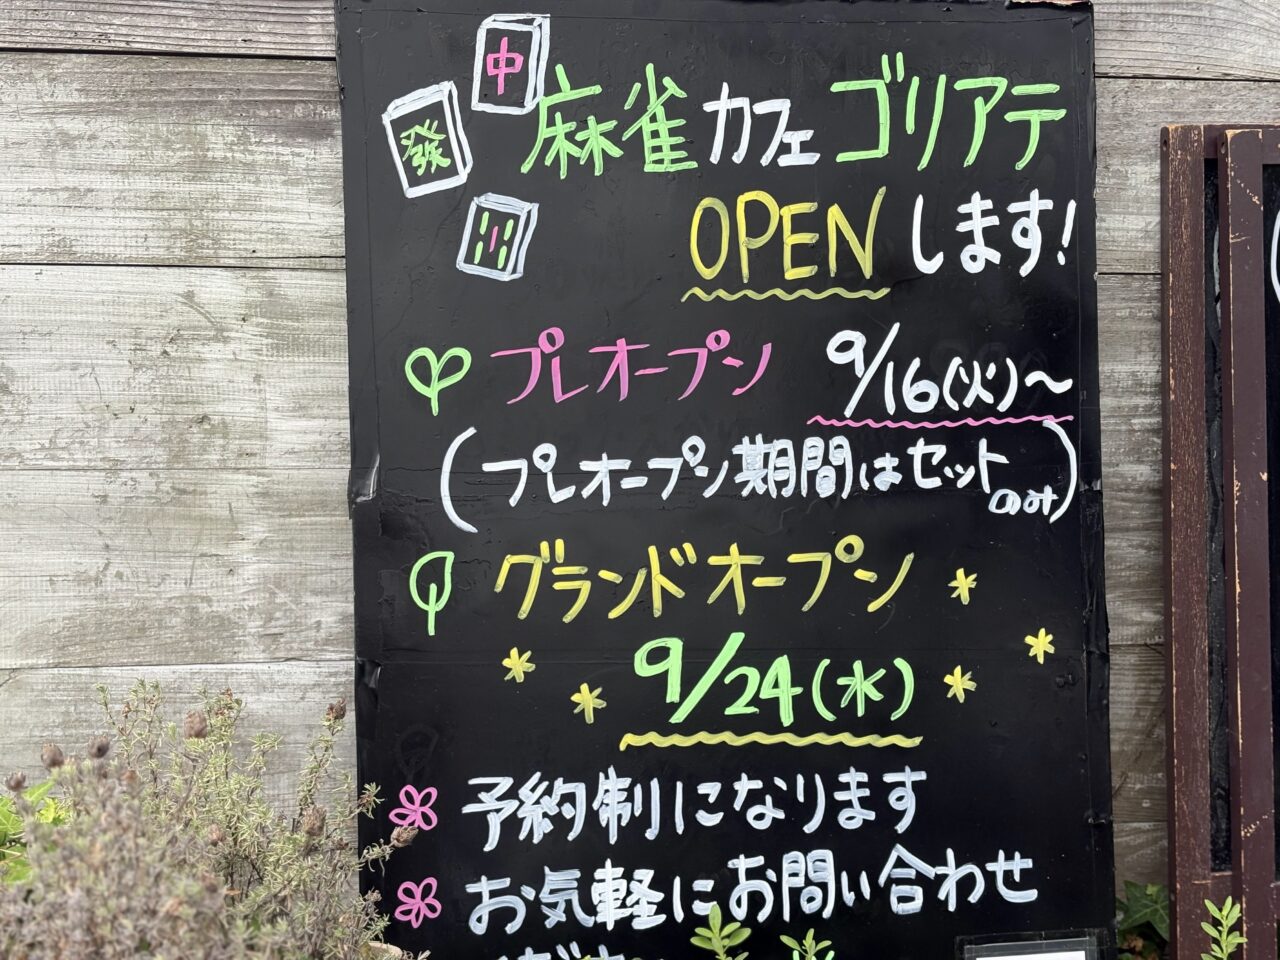 中
發
麻雀カフェ ゴリアテ
OPENします!
プレオープン 9/16(火)~
(プレオープン期間はセットのみ)
グランドオープン
9/24(水)
予約制になります
お気軽にお問い合わせ